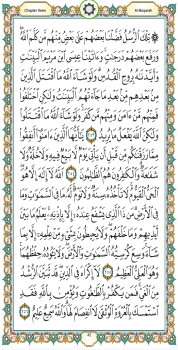 Chapter three Al Baqarah
تِلْكَ الرُّسُلُ فَضَّلْنَا بَعْضَهُمْ عَلَىٰ بَعْضٍ مِّنْهُم مَّن كَلَّمَ اللَّهُ
وَرَفَعَ بَعْضَهُمْ دَرَجَٰتٍ وَءَاتَيْنَا عِيسَى ابْنَ مَرْيَمَ الْبَيِّنَٰتِ
وَأَيَّدْنَٰهُ بِرُوحِ الْقُدُسِ وَلَوْ شَاءَ اللَّهُ مَا اقْتَتَلَ الَّذِينَ
مِن بَعْدِهِم مِّن بَعْدِ مَا جَاءَتْهُمُ الْبَيِّنَٰتُ وَلَٰكِنِ اخْتَلَفُوا
فَمِنْهُم مَّنْ ءَامَنَ وَمِنْهُم مَّن كَفَرَ وَلَوْ شَاءَ اللَّهُ مَا اقْتَتَلُوا
وَلَٰكِنَّ اللَّهَ يَفْعَلُ مَا يُرِيدُ ٢٥٣ يَٰأَيُّهَا الَّذِينَ ءَامَنُوا أَنفِقُوا
مِمَّا رَزَقْنَٰكُم مِّن قَبْلِ أَن يَأْتِيَ يَوْمٌ لَّا بَيْعٌ فِيهِ وَلَا خُلَّةٌ وَلَا
شَفَٰعَةٌ وَالْكَٰفِرُونَ هُمُ الظَّٰلِمُونَ ٢٥٤ اللَّهُ لَا إِلَٰهَ إِلَّا هُوَ
الْحَيُّ الْقَيُّومُ لَا تَأْخُذُهُ سِنَةٌ وَلَا نَوْمٌ لَّهُ مَا فِي السَّمَٰوَٰتِ وَمَا
فِي الْأَرْضِ مَن ذَا الَّذِي يَشْفَعُ عِندَهُ إِلَّا بِإِذْنِهِ يَعْلَمُ مَا بَيْنَ
أَيْدِيهِمْ وَمَا خَلْفَهُمْ وَلَا يُحِيطُونَ بِشَيْءٍ مِّنْ عِلْمِهِ إِلَّا بِمَا
شَاءَ وَسِعَ كُرْسِيُّهُ السَّمَٰوَٰتِ وَالْأَرْضَ وَلَا يَئُودُهُ حِفْظُهُمَا
وَهُوَ الْعَلِيُّ الْعَظِيمُ ٢٥٥ لَا إِكْرَاهَ فِي الدِّينِ قَد تَّبَيَّنَ الرُّشْدُ
مِنَ الْغَيِّ فَمَن يَكْفُرْ بِالطَّٰغُوتِ وَيُؤْمِن بِاللَّهِ فَقَدِ
اسْتَمْسَكَ بِالْعُرْوَةِ الْوُثْقَىٰ لَا انفِصَامَ لَهَا وَاللَّهُ سَمِيعٌ عَلِيمٌ ٢٥٦